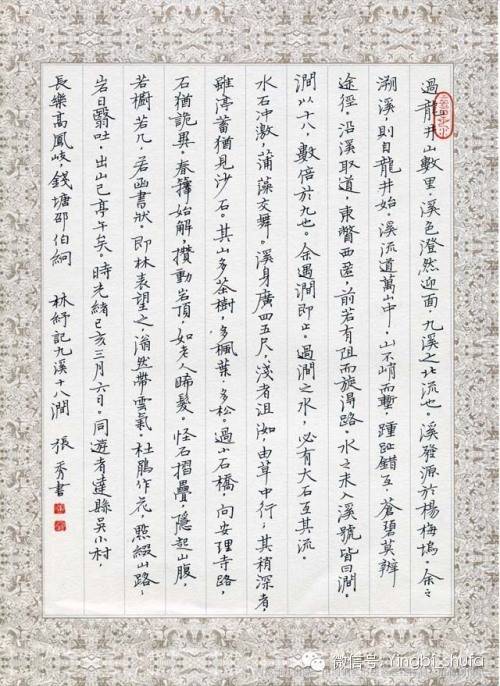 過龍井山數里，溪色澄然迎面，九溪之北流也。溪發源於楊梅塢。余之
溯溪，則自龍井始。溪流道萬山中，山不峭而塹，踵趾錯互，蒼碧莫辨
途徑。沿溪取道，東瞥西匿，前若有阻而旋得路。水之未入溪號皆曰澗。
澗以十八，數倍於九也。余遇澗即止。過澗之水，必有大石亙其流。
水石沖激，蒲藻交舞。溪身廣四五尺，淺者沮洳，由草中行；其稍深者，
雖渟蓄猶見沙石。其山多茶樹，多楓葉，多松。過小石橋，向安理寺路，
石猶詭異。春籜始解，攢動岩頂，如老人晞髮。怪石摺疊，隱起山腹，
若櫥若几，若函書狀。即林表望之，滃然帶雲氣。杜鵑作花，點綴山路，
岩日翳吐，出山已亭午矣。時光緒己亥三月六日。同遊者達縣吳小村，
長樂高鳳岐，錢塘邵伯絅 林紓記九溪十八澗 張秀書
微信号: Yingbi_shufa